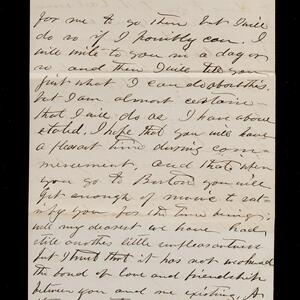 for me to go then but I will
do so if I possibly can, I
will write to you in a day or
so and then I will tell you
just what I can do about this.
but I am almost certain
that I will do as I have above
stated, I hope that you will have
a pleasant time during com-
mencement, and that when
you go to Boston you will
get enough of music to sat-
isfy you for the time being;
well my dearest we have had
still another little unpleasantness
but I trust that it has not weakened
the bond of love and friendship
between you and me existing,